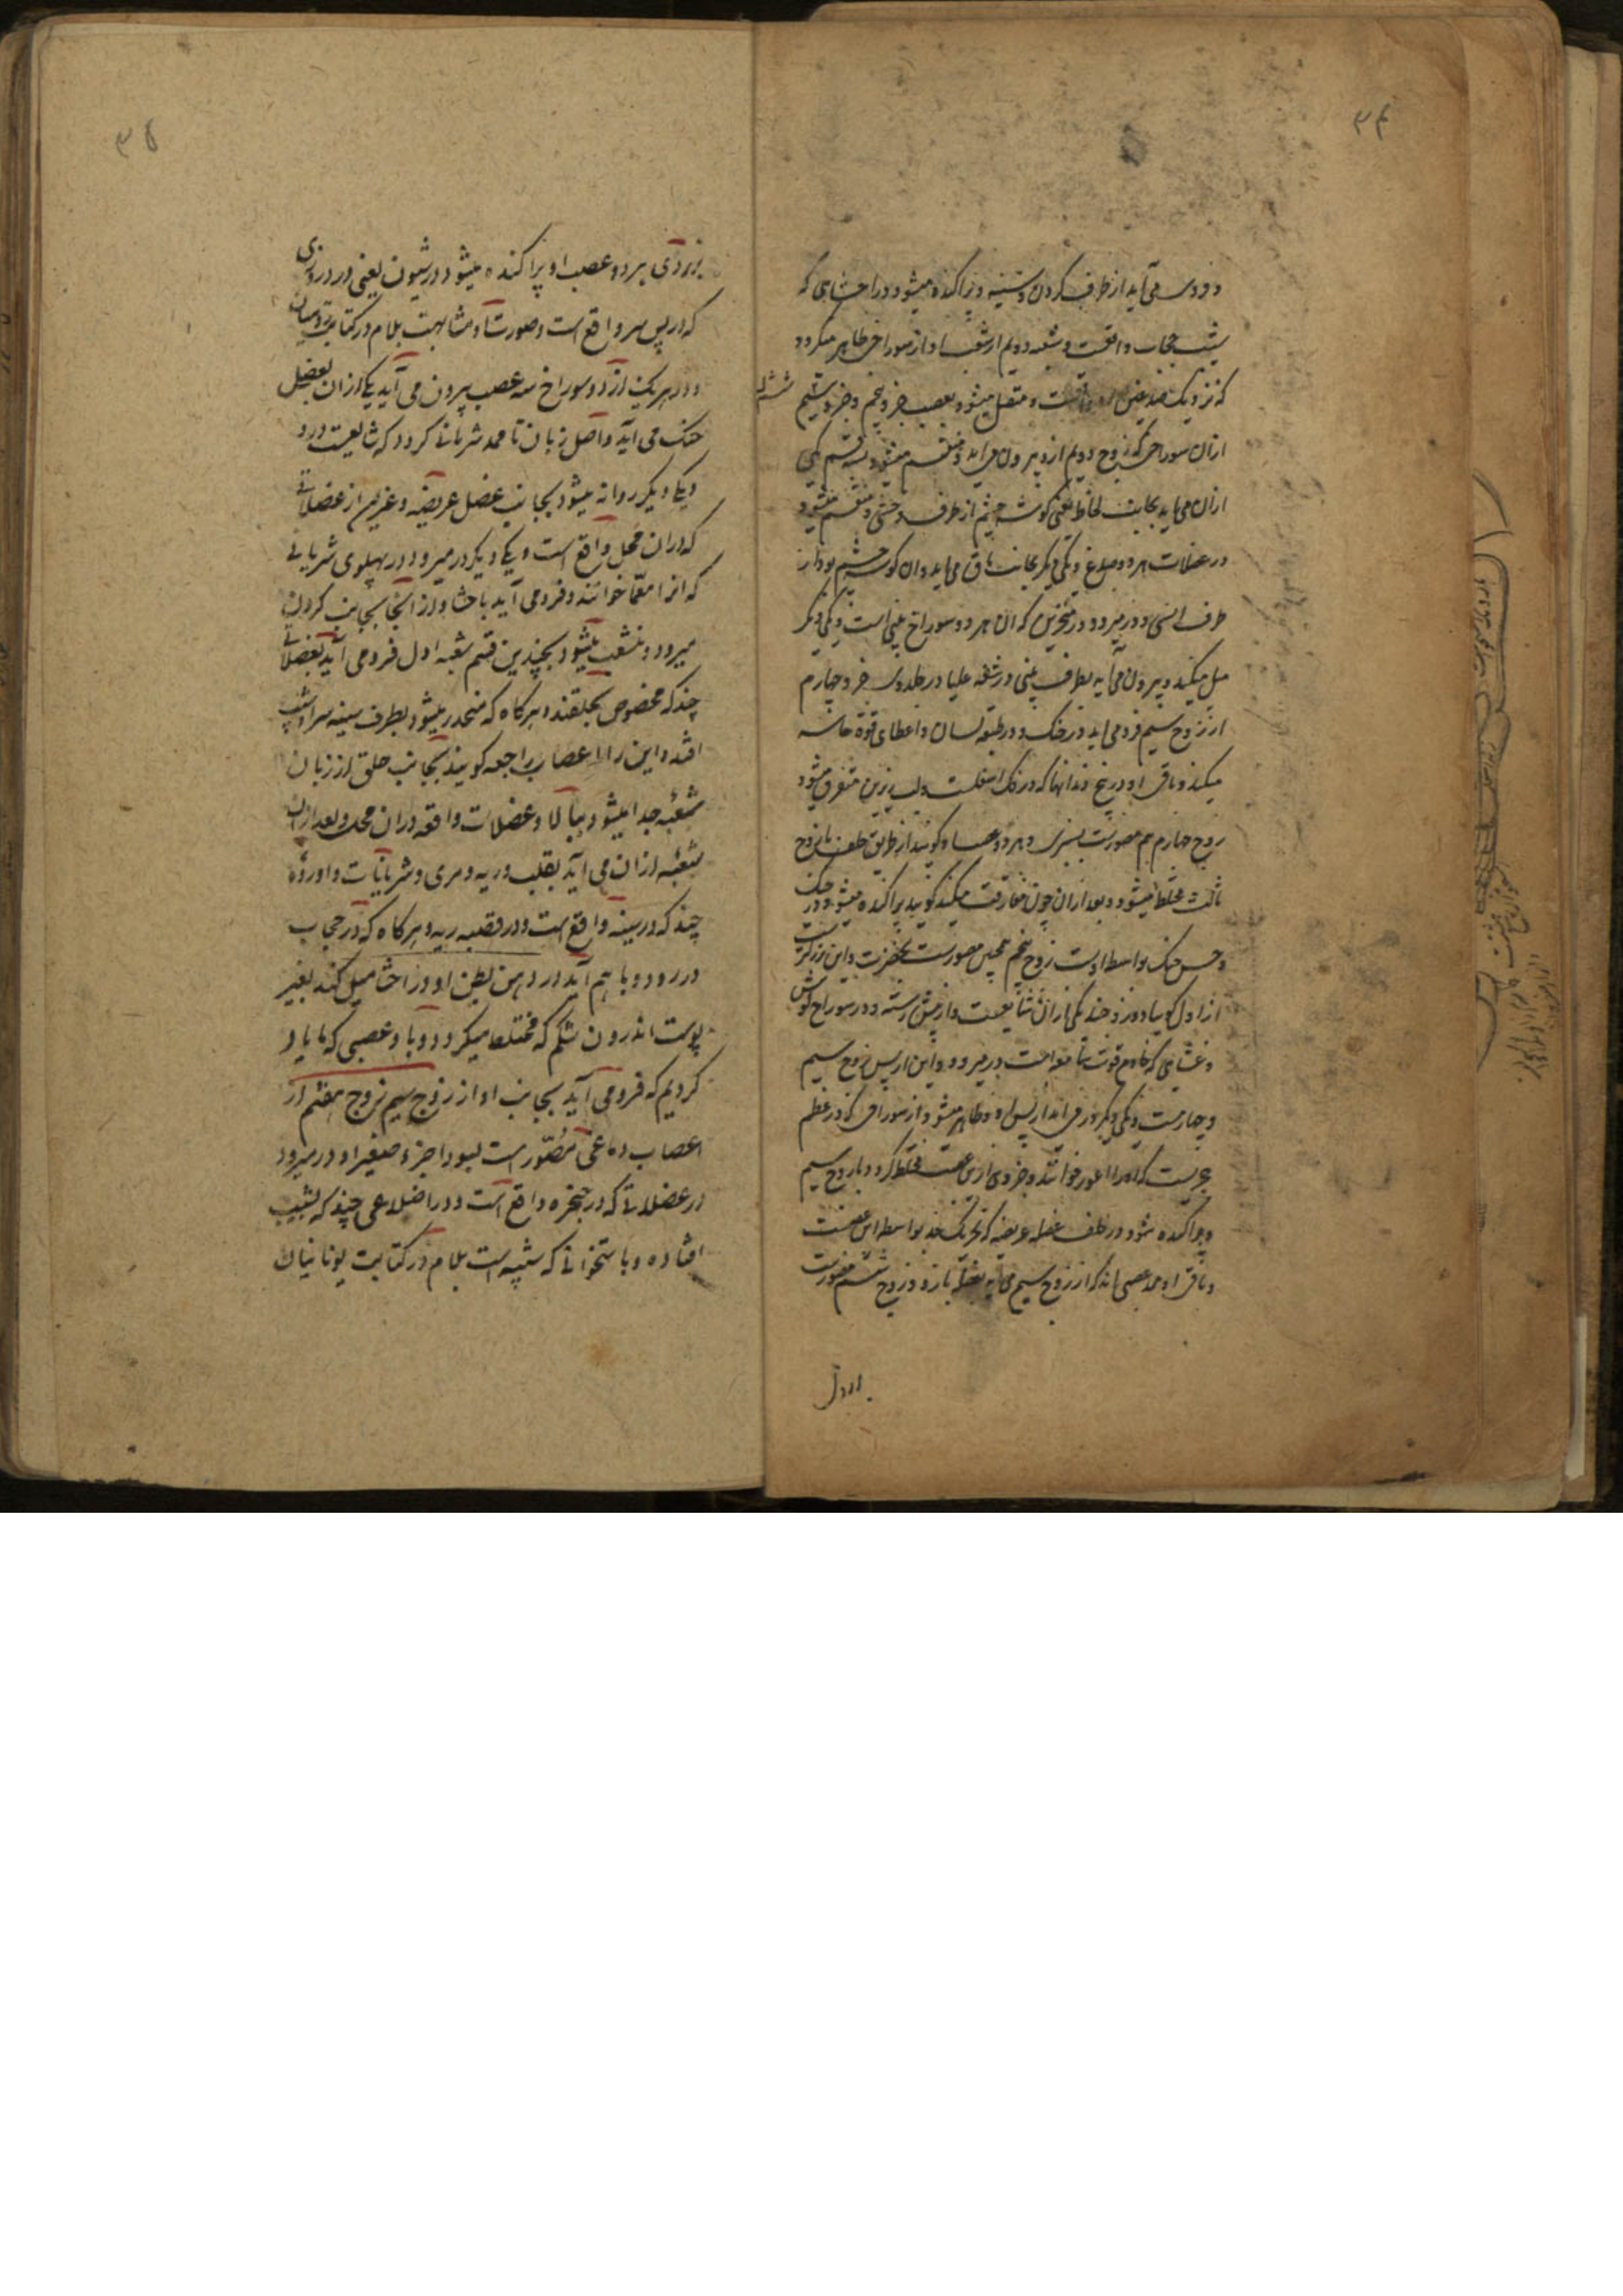 ۳۴
و فرو می آید از طرف کردن و سینه و پراکنده میشود در احشایی که
شیب حجاب واقعست و شعبه دویم از شعب او از سوراخی ظاهر میکردد
که نزدیک صدغین و متصل میشود بعصب جزو پنجم و جزو ششم
از آن سوراخی که زوج دویم ازو بیرون می آید و منقسم میشود بسه قسم یکی
از آن می آید بجانب لحاظ یعنی کوشه چشم از طرف وحشی و منقسم میشود
در عضلات هر دو صدغ و یکی دیکر بجانب ماق می آید و ان کوشه چشم بود از
طرف انسی و در میرود در منخرین که ان هر دو سوراخ بینی است و یکی دیکر
میل میکند و بیرون می آید بطرف بینی و در شفه علیا در جلد وی جزو چهارم
از زوج سیم فرو می آید در حنک و در طبقه لسان و اعطای قوة حاسه
میکند و باقی او در بیخ دندانها که در فک اسفلست و لب زیرین متفرق میشود
زوج چهارم هم مصورست بسبزی و هر دو عصب او کویند از طریق خلف با زوج
ثالث مختلط میشود و بعد از ان چون مفارقت میکند کویند پراکنده میشود در حنک
و حس حنک بواسطه اوست زوج پنجم همچنین مصورست بخضرت و این زوج
از اول کویند دو زوجند یکی از ان و از پیش رسته و در سوراخ کوش
و غشایی که خادم قوت سامعه است در میرود و این از پس زوج سیم
و چهارمست و یکی دیکر ور می آید از پس او و ظاهر میشود از سوراخی که در عظم
حجریست که او را اعور خوانند و جزوی ازین عصب مختلط کردد با زوج سیم
و پراکنده شود در خلف عضله عریضه که تحریک خد بواسطه این عصبست
و باقی او با عصبی اند که از زوج سیم می آید بعضله بازو و زوج ششم مصورست
بزردی هر دو عصب او پراکنده میشود در شیون یعنی در درزی
که در پس سر واقع است و صورتاً و مشابهت بلام در کتابت یونانیان
و در هریک از دو سوراخ سه عصب بیرون می آید یکی از ان بعضل
حنک می آید و اصل زبان تا ممد شریانی کردد که شایعست درو
و یکی دیکر روانه میشود بجانب عضل عریضه و غیرین از عضلاتی
که در ان محل واقع است و یکی دیکر در میرود در پهلوی شریانی
که انرا معما خوانند و فرو می آید باحشا و از انجا بجانب کردن
میرود و منشعب میشود بچندین قسم شعبه اول فرو می آید بعضلاتی
چند که مخصوص بحلقند و هرکاه که منحدر میشود بطرف سینه سراشیب
افتد و این را اعصاب راجعه کویند بجانب حلق از زبان
شعبه جدا میشود ببالا و عضلات واقعه در ان محل و بعد از ان
شعبه از ان می آید بقلب و ریه و مری و شریانات و اورده
چند که در سینه واقع است و در قصبه ریه و هرکاه که در حجاب
در رود و با هم آید در دهن بطن او و در احشا میل کند بغیر
پوست اندرون شکم که مختلط میکردد و با و عصبی که ما یاد
کردیم که فرو می آید بجانب او از زوج سیم زوج هفتم از
اعصاب دماغی مصور است بسواد اجزء صغیر او در میرود
در عضلاتی که در حنجره واقع است و در اضلاعی چند که بشیب
افتاده و باستخوانی که شبیه است بلام در کتابت یونانیان
۳۵